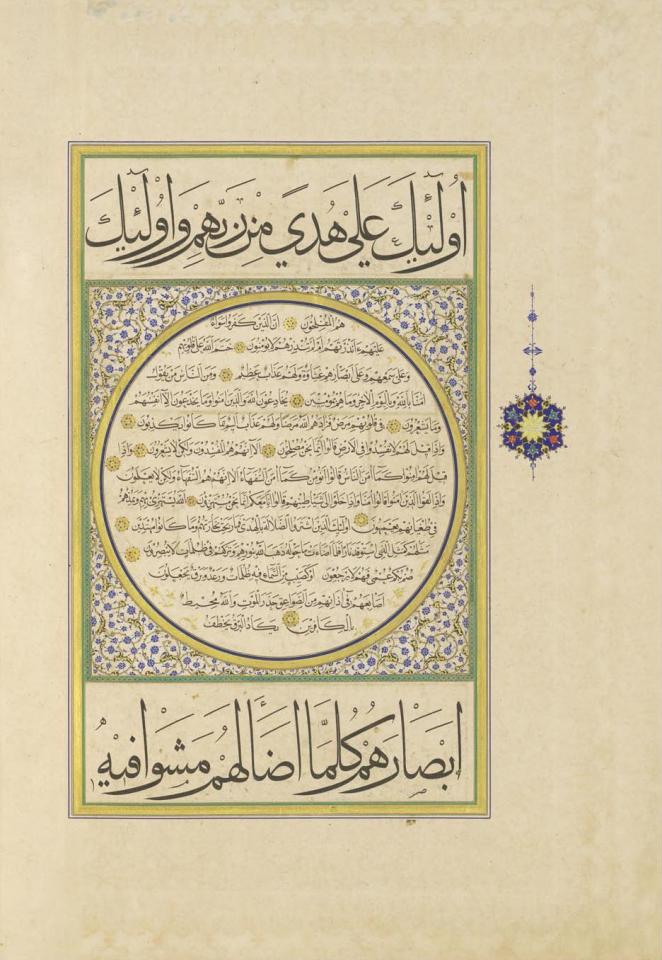 أُولَٰئِكَ عَلَىٰ هُدًى مِنْ رَبِّهِمْ وَأُولَٰئِكَ
هم المفلحون ان الذين كفروا سواء
عليهم ءانذرتهم ام لم تنذرهم لا يؤمنون ختم الله على قلوبهم
وعلى سمعهم وعلى ابصارهم غشاوة ولهم عذاب عظيم ومن الناس من يقول
امنا بالله وباليوم الاخر وما هم بمؤمنين يخادعون الله والذين امنوا وما يخدعون الا انفسهم
وما يشعرون في قلوبهم مرض فزادهم الله مرضا ولهم عذاب اليم بما كانوا يكذبون
واذا قيل لهم لا تفسدوا في الارض قالوا انما نحن مصلحون الا انهم هم المفسدون ولكن لا يشعرون واذا
قيل لهم امنوا كما امن الناس قالوا انؤمن كما امن السفهاء الا انهم هم السفهاء ولكن لا يعلمون
واذا لقوا الذين امنوا قالوا امنا واذا خلوا الى شياطينهم قالوا انا معكم انما نحن مستهزؤن الله يستهزئ بهم ويمدهم
في طغيانهم يعمهون اولئك الذين اشتروا الضلالة بالهدى فما ربحت تجارتهم وما كانوا مهتدين
مثلهم كمثل الذي استوقد نارا فلما اضاءت ما حوله ذهب الله بنورهم وتركهم في ظلمات لا يبصرون
صم بكم عمي فهم لا يرجعون او كصيب من السماء فيه ظلمات ورعد وبرق يجعلون
اصابعهم في اذانهم من الصواعق حذر الموت والله محيط
بالكافرين يكاد البرق يخطف
ابصارهم كلما اضا لهم مشوا فيه